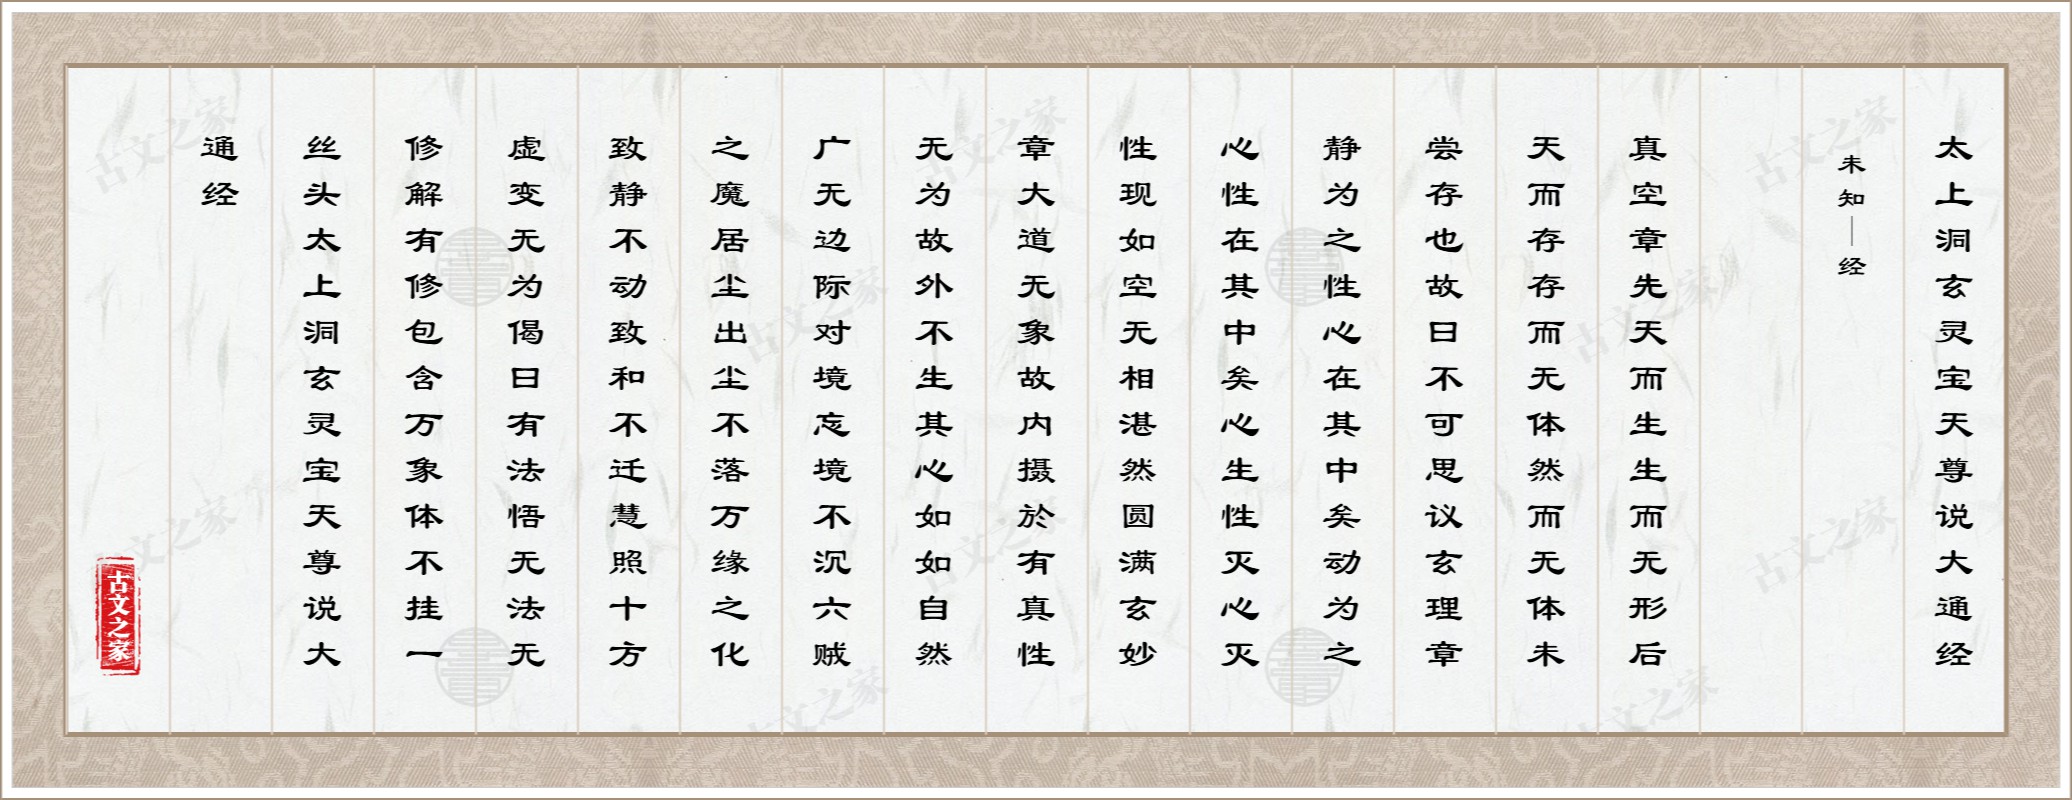 太上洞玄灵宝天尊说大通经
未知—经
真空章先天而生生而无形后
天而存存而无体然而无体未
尝存也故曰不可思议玄理章
静为之性心在其中矣动为之
心性在其中矣心生性灭心灭
性现如空无相湛然圆满玄妙
章大道无象故内摄於有真性
无为故外不生其心如如自然
广无边际对境忘境不沉六贼
之魔居尘出尘不落万缘之化
致静不动致和不迁慧照十方
虚变无为偈曰有法悟无法无
修解有修包含万象体不挂一
丝头太上洞玄灵宝天尊说大
通经
古文之家